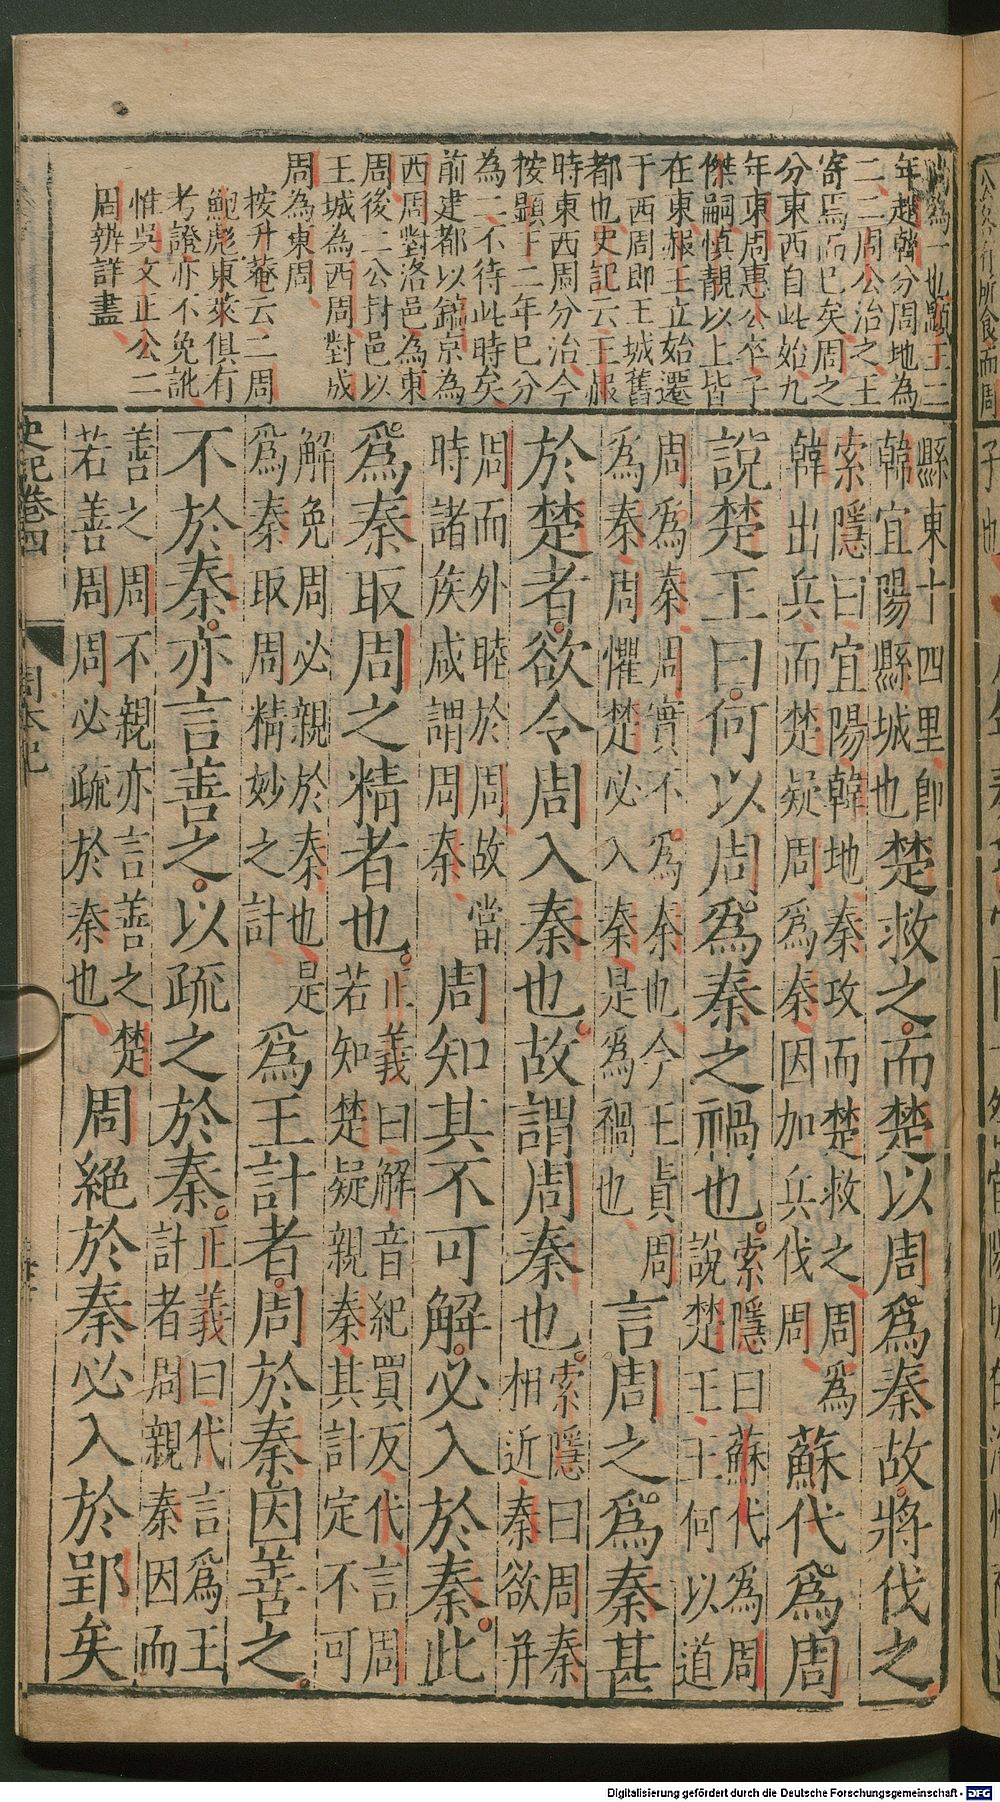 也顯王二
年趙韓分周地為
二二周公治之王
寄焉而已矣周之
分東西自此始九
年東周惠公卒子
傑嗣慎靚以上皆
在東赧王立始遷
于西周即王城舊
都也史記云王赧
時東西周分治今
按顯十二年已分
為二不待此時矣
前建都以鎬京為
西周對洛邑為東
周後二公封邑以
王城為西周對成
周為東周
按升菴云二周
鮑彪東萊俱有
考證亦不免訛
惟吳文正公二
周辨詳盡
縣東十四里即
韓宜陽縣城也
楚救之而楚以周爲秦故將伐之
索隱曰宜陽韓地秦攻而楚救之周爲
韓出兵而楚疑周爲秦因加兵伐周
蘇代爲周
說楚王曰何以周爲秦之禍也
索隱曰蘇代爲周
說楚王王何以道
周爲秦周實不爲秦也今王貞周
爲秦周懼楚必入秦是爲禍也
言周之爲秦甚
於楚者欲令周入秦也故謂周秦也
索隱曰周秦
相近秦欲并
周而外睦於周故當
時諸侯咸謂周秦
周知其不可解必入於秦此
爲秦取周之精者也
正義曰解音紀買反代言周
若知楚疑親秦其計定不可
解免周必親於秦也是
爲秦取周精妙之計
爲王計者周於秦因善之
不於秦亦言善之以疏之於秦
正義曰代言爲王
計者周親秦因而
善之周不親亦言善之楚
若善周周必疏於秦也
周絕於秦必入於郢矣
史記卷四
周本紀
Digitalisierung gefördert durch die Deutsche Forschungsgemeinschaft - DFG